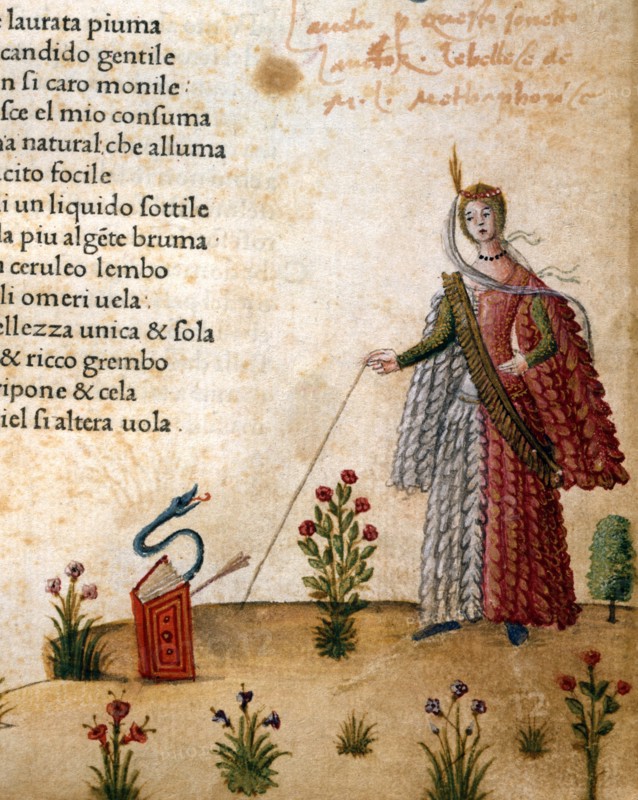 e laurata piuma
candido gentile
n ſi caro monile:
ſce el mio conſuma
ma natural:che alluma
cito focile
i un liquido ſottile
la piu algēte bruma
n ceruleo lembo
li omeri uela:
ellezza unica & ſola
& ricco grembo
ripone & cela
iel ſi altera uola .
Lauda p questo sonetto
Lauctor. le belleze de
M. L. Methaphorice